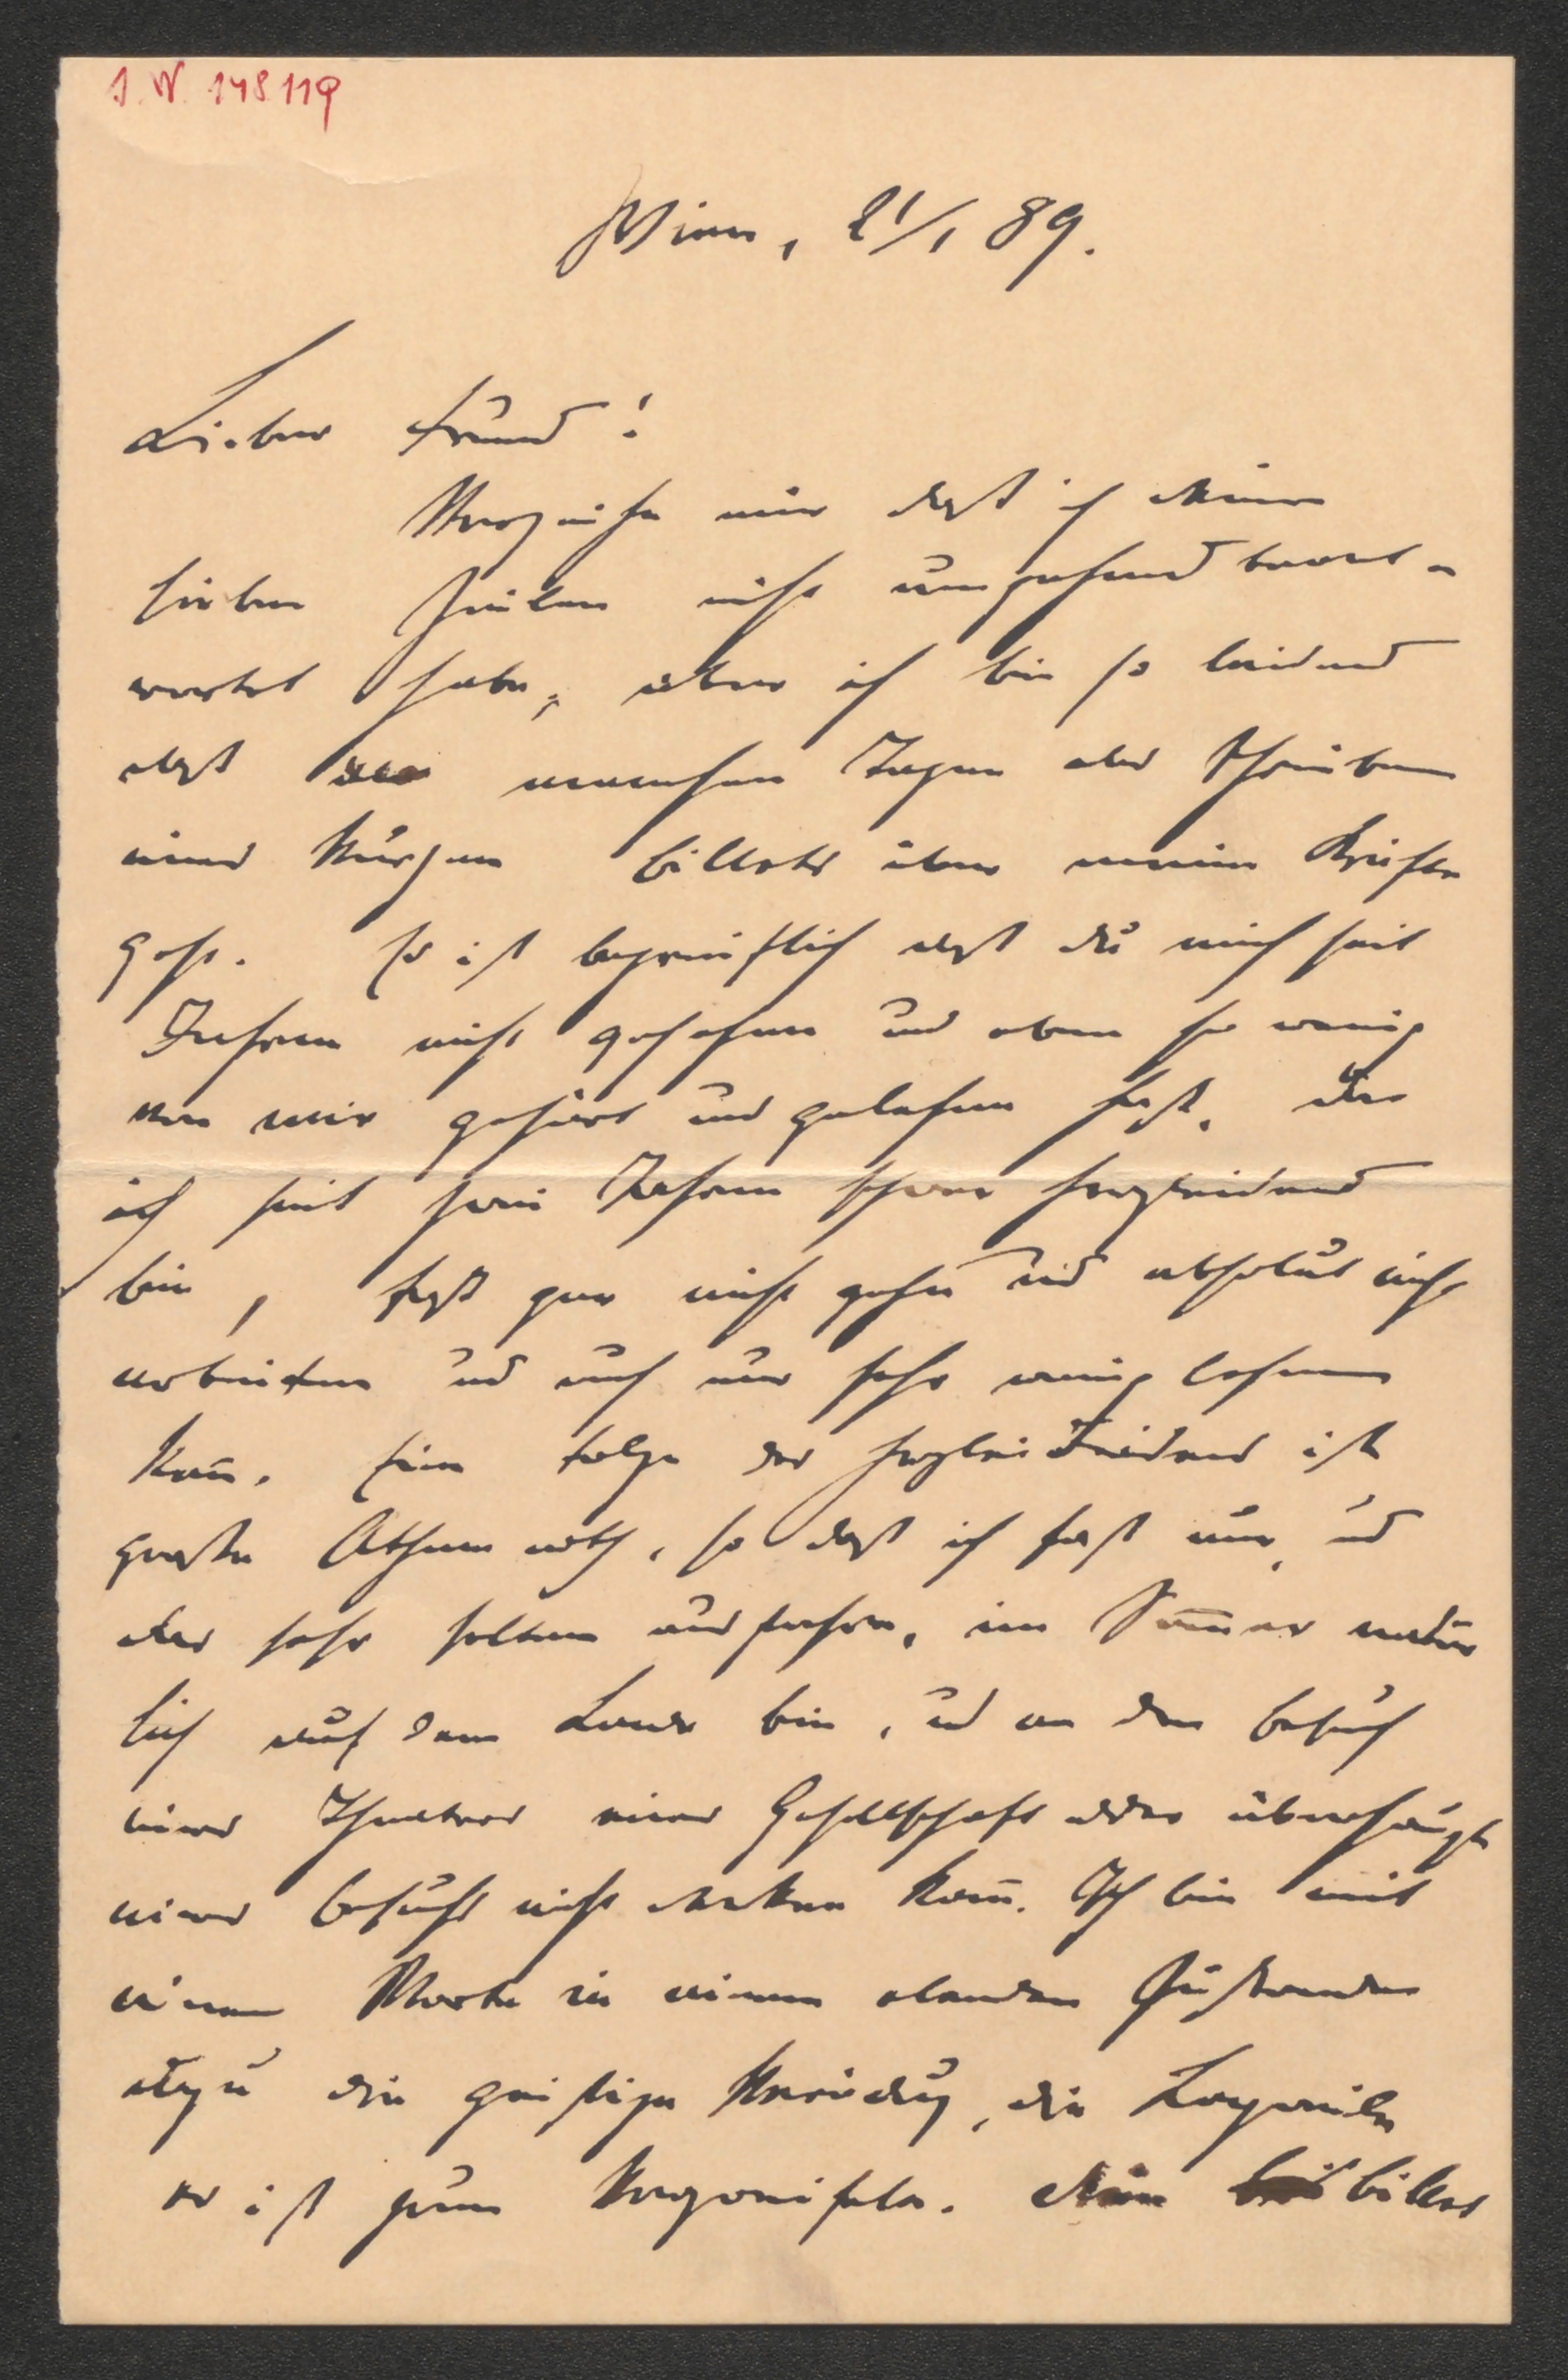 I. N. 148.119
Wien, 21/1 89.
Lieber Freund!
Verzeihe mir daß ich Deine
lieben Zeilen nicht umgehend beant-
wortet habe, aber ich bin so leidend
daß an manchen Tagen das Schreiben
eines kurzen Billets über meine Kräfte
geht. Es ist begreiflich daß du mich seit
Jahren nicht gesehen und eben so wenig
von mir gehört und gelesen hast, da
ich seit zwei Jahren schwer herzleidend
bin, fast gar nicht gehen und absolut nicht
arbeiten und auch nur sehr wenig lesen
kann. Eine Folge des Herzleidens ist
große Athemnoth, so daß ich fast nur, und
das sehr selten ausfahre, im Sommer natür
lich auf dem Lande bin, und an den Besuch
eines Theaters einer Gesellschaft oder überhaupt
eines Besuchs nicht denken kann. Ich bin mit
einem Worte in einem elenden Zustande
dazu die geistige Verödung, die Langweile
es ist zum Verzweifeln. Dein Billet